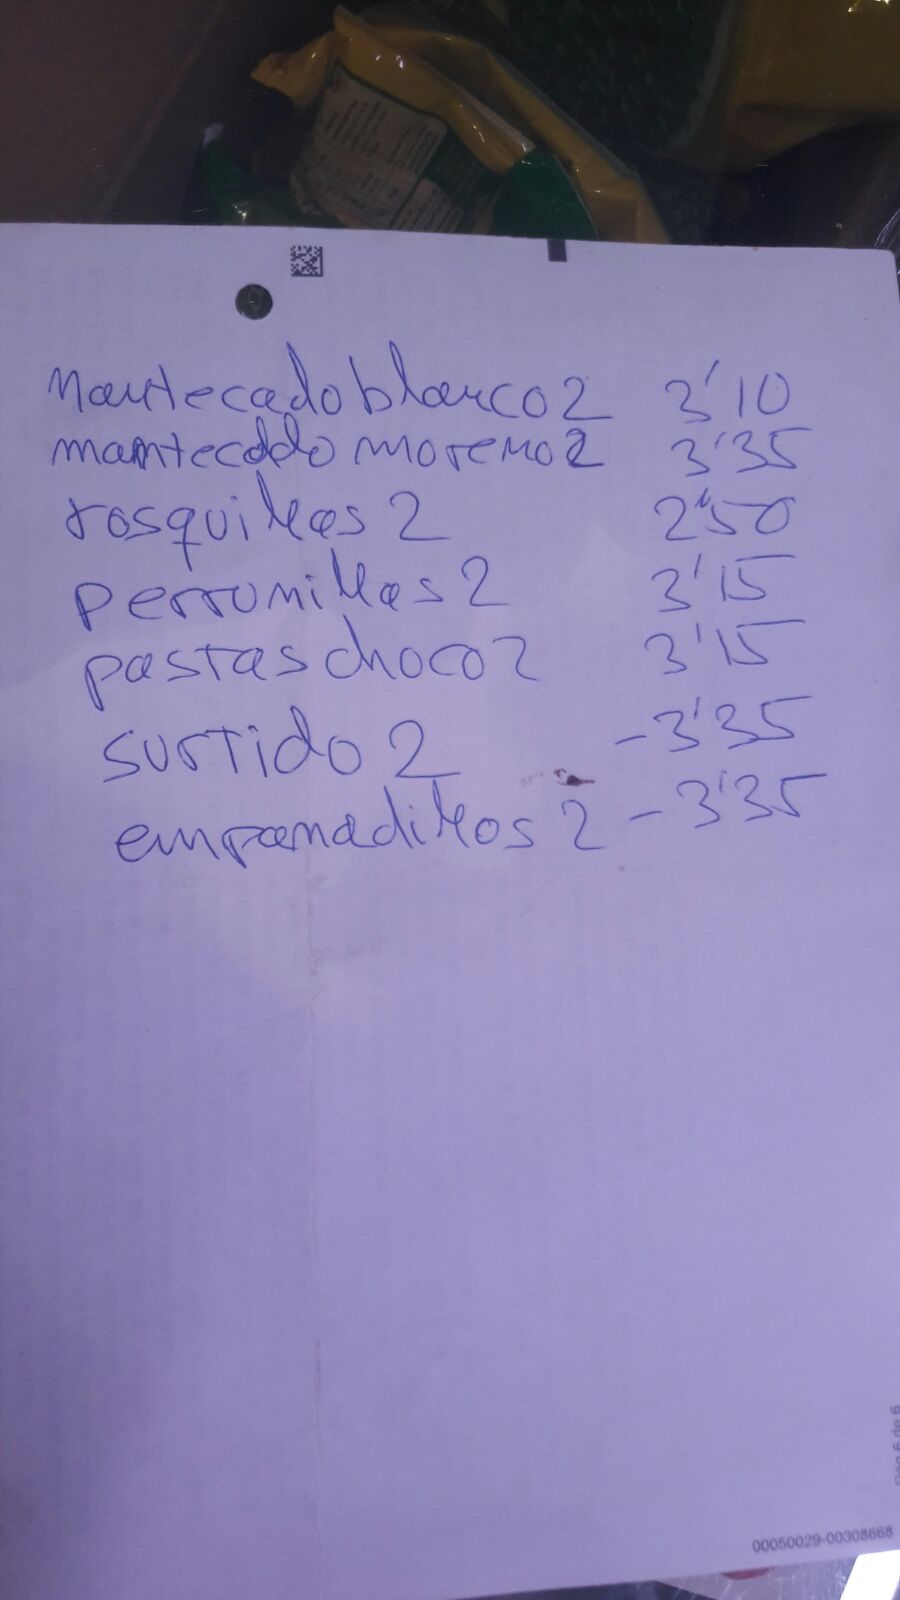 Mantecado blanco 2 3'10
mantecado moreno 2 3'35
rosquillas 2 2'50
perronillas 2 3'15
pastas choco 2 3'15
surtido 2 -3'35
empanadillas 2 - 3'35
Pág 6 de 6
00050029-00308668